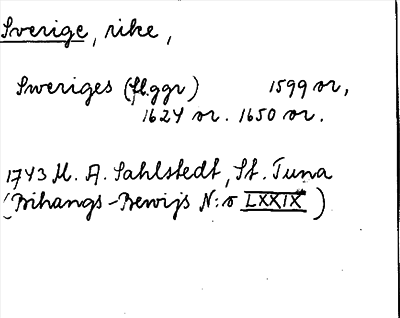 Sverige, rike,
Sweriges (fl.ggr) 1599 or,
1624 or. 1650 or.
1743 M. A. Sahlstedt, St. Tuna
(Bihangs-Bewijs N:o LXXIX)